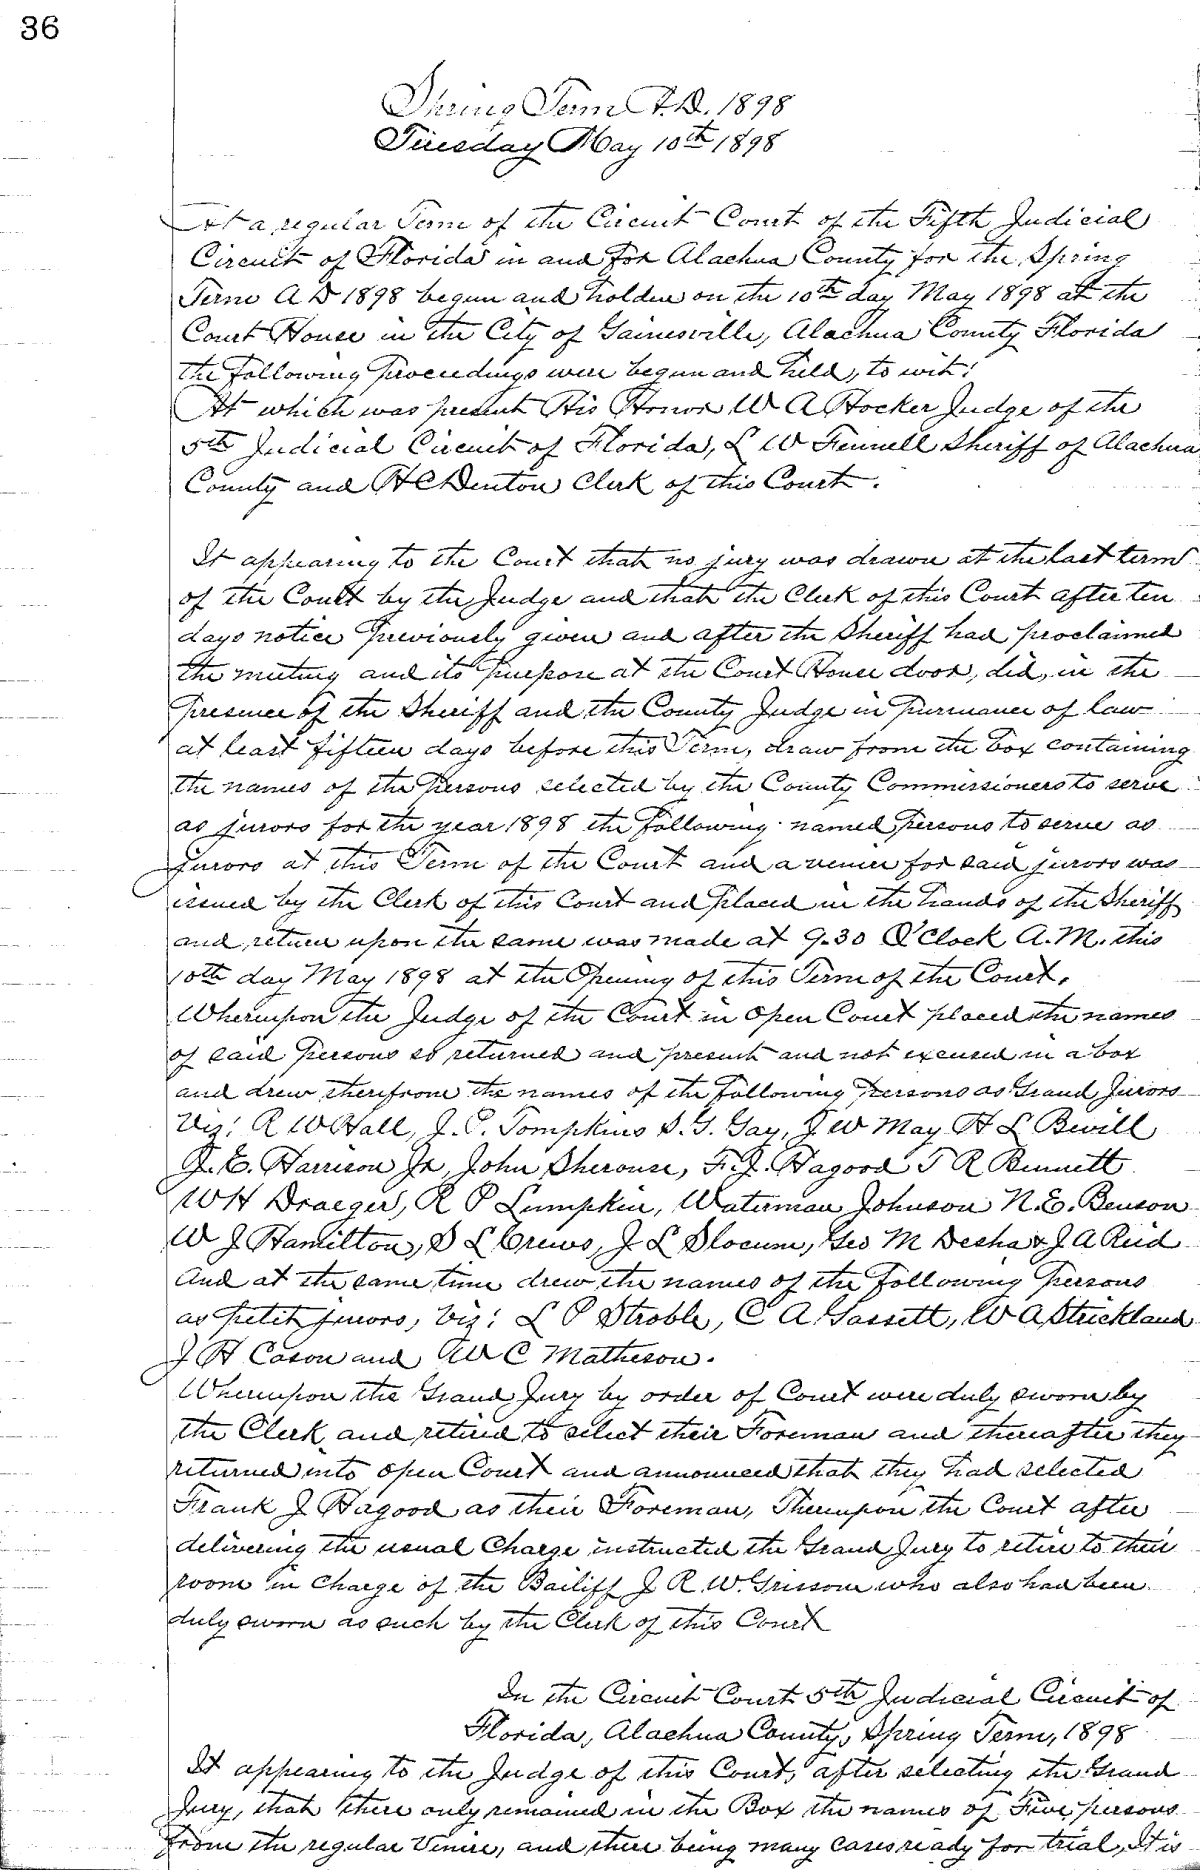 36
Spring Term A.D. 1898
Tuesday May 10th 1898
At a regular Term of the Circuit Court of the Fifth Judicial
Circuit of Florida in and for Alachua County for the Spring
Term A D 1898 begun and holden on the 10th day May 1898 at the
Court House in the City of Gainesville, Alachua County Florida
the following proceedings were begun and held, to wit:
At which was present His Honor W A Hocker Judge of the
5th Judicial Circuit of Florida, L W Fennell Sheriff of Alachua
County and H C Denton Clerk of this Court.
It appearing to the Court that no jury was drawn at the last term
of the Court by the Judge and that the Clerk of this Court after ten
days notice previously given and after the Sheriff had proclaimed
the meeting and its purpose at the Court House door, did, in the
presence of the Sheriff and the County Judge in pursuance of law
at least fifteen days before this Term, draw from the box containing
the names of the persons selected by the County Commissioners to serve
as jurors for the year 1898 the following named persons to serve as
jurors at this Term of the Court and a venire for said jurors was
issued by the Clerk of this Court and placed in the hands of the Sheriff
and return upon the same was made at 9.30 O'Clock A.M. this
10th day May 1898 at the Opening of this Term of the Court.
Whereupon the Judge of the Court in open Court placed the names
of said persons so returned and present and not excused in a box
and drew therefrom the names of the following persons as Grand Jurors
Viz: R W Hall, J. C. Tompkins S. G. Gay, J W May H L Bevill
J. E. Harrison Jr, John Sherouse, F. J. Hagood T R Bennett
W H Draeger, R P Lumpkin, Waterman Johnson N. E. Benson
W J Hamilton, S L Crews, J L Slocum, Geo M Desha & J A Reid
And at the same time drew the names of the following persons
as petit jurors, viz: L P Stroble, C A Gassett, W A Strickland
J H Cason and W C Matheson.
Whereupon the Grand Jury by order of Court were duly sworn by
the Clerk and retired to select their Foreman and thereafter they
returned into open Court and announced that they had selected
Frank J Hagood as their Foreman, Thereupon the Court after
delivering the usual Charge instructed the Grand Jury to retire to their
room in charge of the Bailiff J R. W. Grissom who also had been
duly sworn as such by the Clerk of this Court
In the Circuit Court 5th Judicial Circuit of
Florida, Alachua County, Spring Term, 1898
It appearing to the Judge of this Court, after selecting the Grand
Jury, that there only remained in the Box the names of Five persons
from the regular Venire, and there being many cases ready for trial, It is